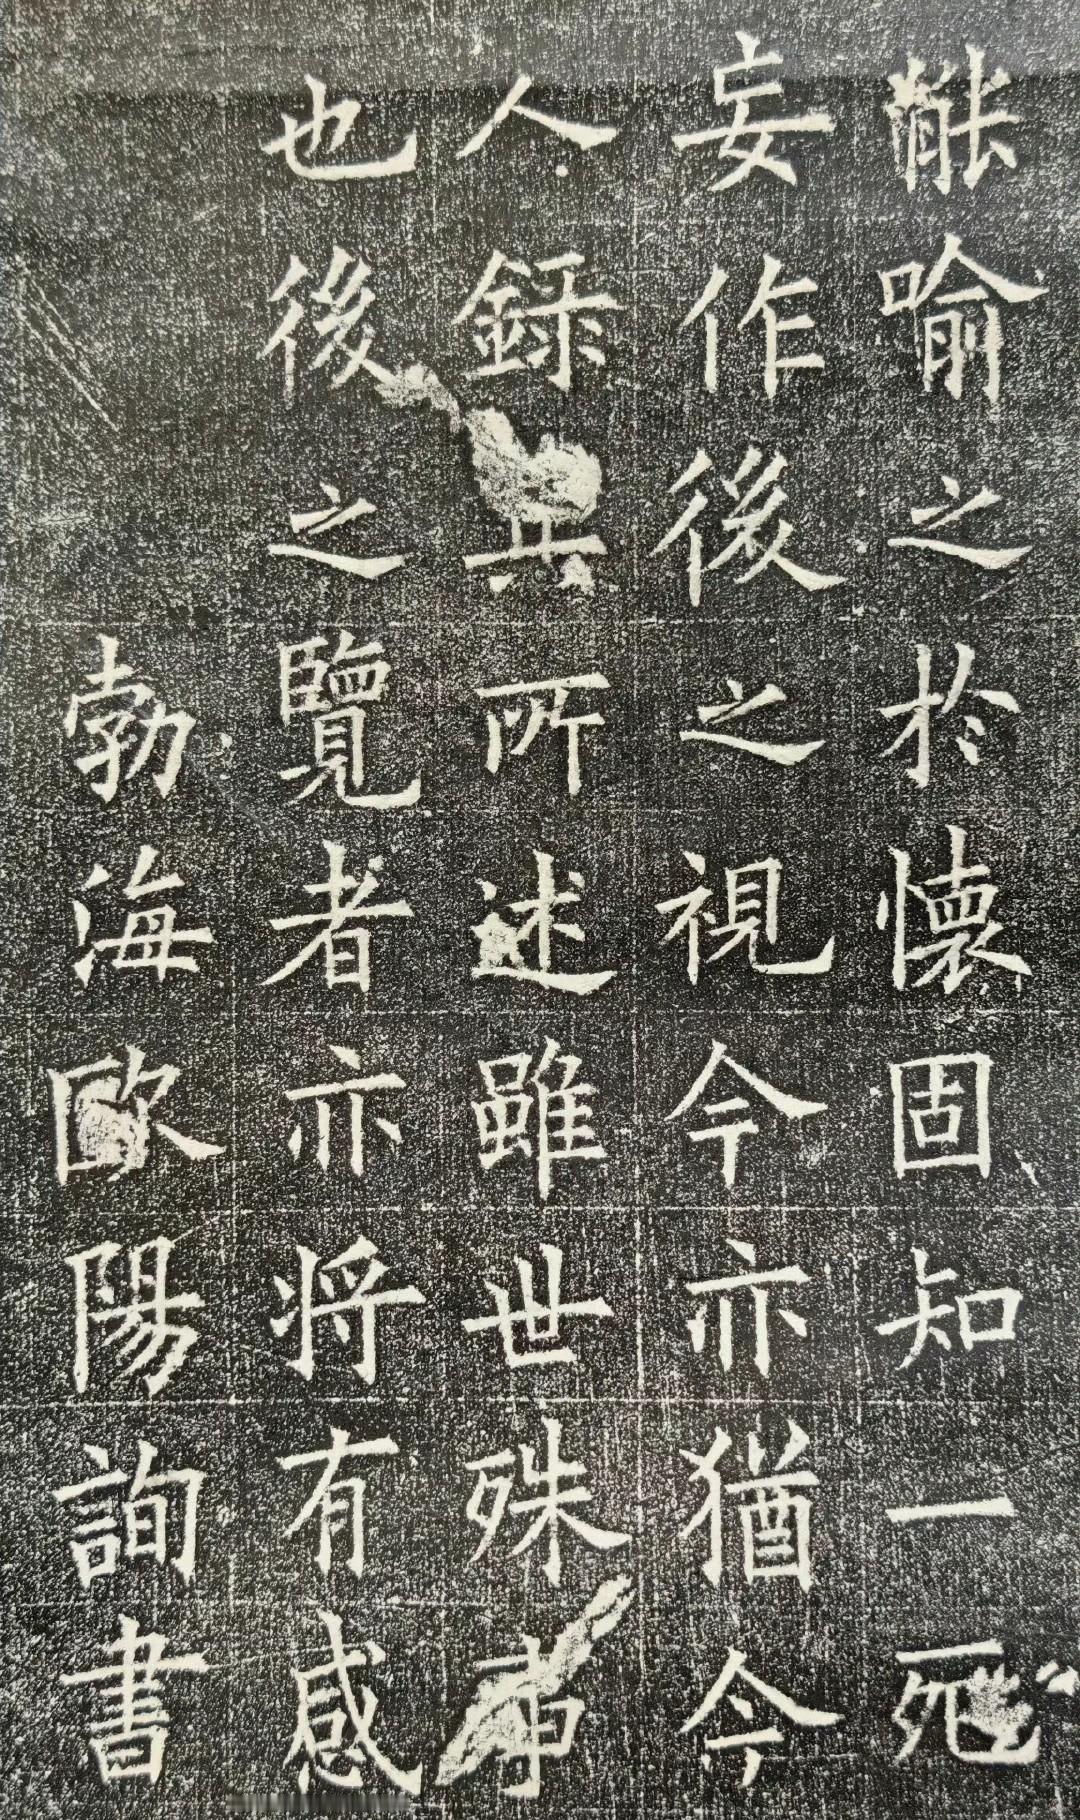 能喻之於懷固知一死
妄作後之視今亦猶今
人錄其所述雖世殊事
也後之覽者亦將有感
勃海歐陽詢書